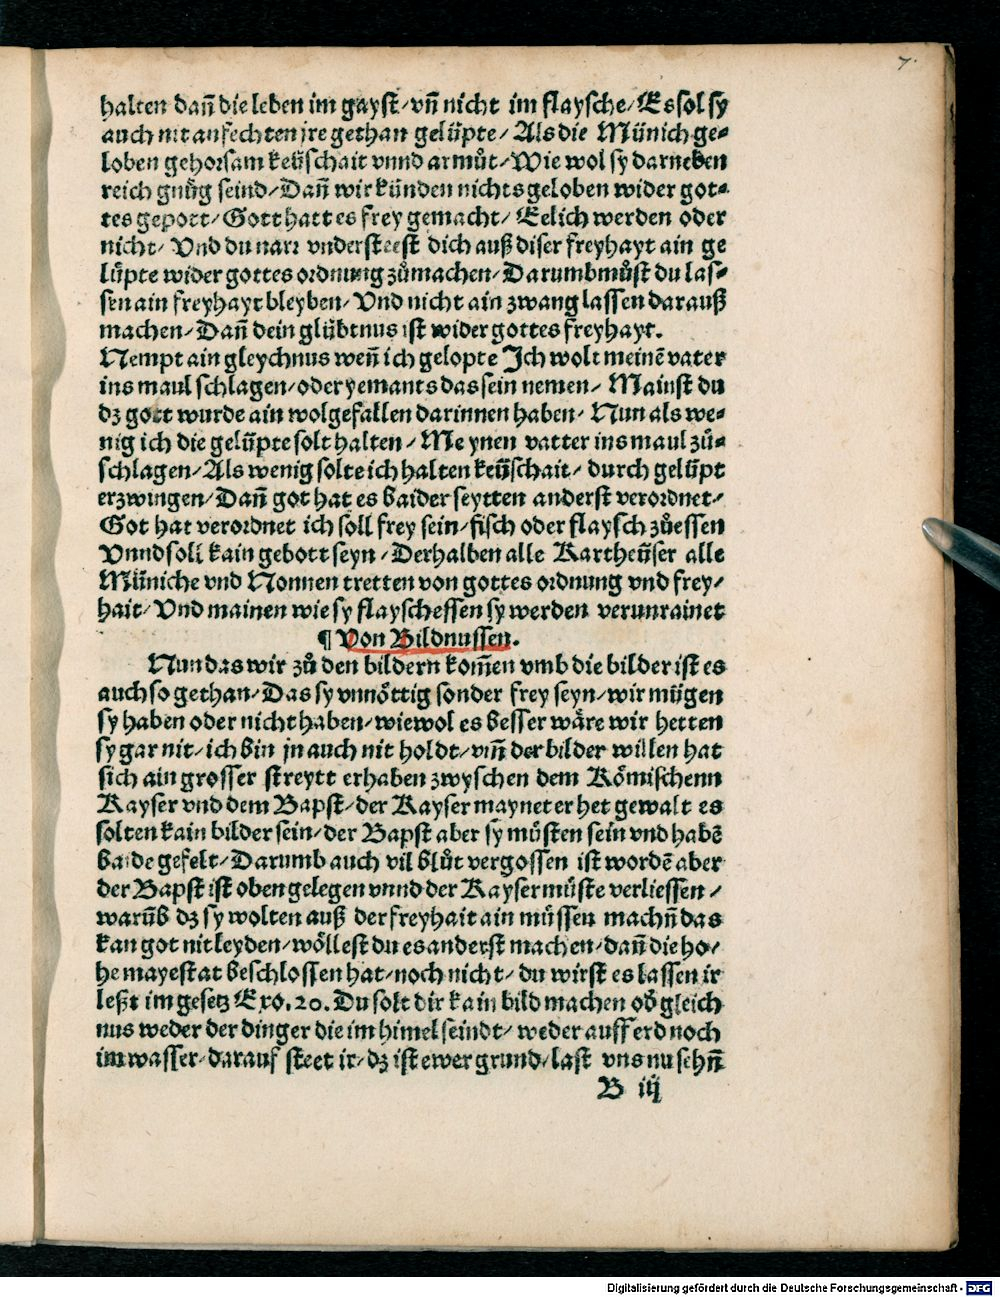 7.
halten dañ die leben im gayst/ vñ nicht im flaysche/ Es sol sy
auch nit anfechten jre gethan gelüpte/ Als die Münich ge⸗
loben gehorsam keüschait vnnd armůt/ Wie wol sy darneben
reich gnůg seind/ Dañ wir künden nichts geloben wider got⸗
tes gepott/ Gott hatt es frey gemacht/ Eelich werden oder
nicht/ Vnd du narr vndersteest dich auß diser freyhayt ain ge
lüpte wider gottes ordnung zůmachen/ Darumb můst du las⸗
sen ain freyhayt bleyben/ Vnd nicht ain zwang lassen darauß
machen/ Dañ dein glübtnus ist wider gottes freyhayt.
Nempt ain gleychnus weñ ich gelopte Ich wolt meinē vater
ins maul schlagen/ oder yemants das sein nemen/ Mainst du
dz gott wurde ain wolgefallen darinnen haben/ Nun als we⸗
nig ich die gelüpte solt halten/ Meynen vatter ins maul zů⸗
schlagen/ Als wenig solte ich halten keüschait/ durch gelüpt
erzwingen/ Dañ got hat es baider seytten anderst verordnet/
Got hat verordnet ich soll frey sein/ fisch oder flaysch zůessen
Vnnd soll kain gebott seyn/ Derhalben alle Kartheüser alle
Müniche vnd Nonnen tretten von gottes ordnung vnd frey/
hait/ Vnd mainen wie sy flayschessen sy werden verunrainet
¶ Von Bildnussen.
Nun das wir zů den bildern kom̃en vmb die bilder ist es
auch so gethan/ Das sy vnnöttig sonder frey seyn/ wir mügen
sy haben oder nicht haben/ wiewol es besser wäre wir hetten
sy gar nit/ ich bin jn auch nit holdt/ vm̃ der bilder willen hat
sich ain grosser streytt erhaben zwyschen dem Römischenn
Kayser vnd dem Bapst/ der Kayser maynet er het gewalt es
solten kain bilder sein/ der Bapst aber sy müsten sein vnd habē
baide gefelt/ Darumb auch vil blůt vergossen ist wordē aber
der Bapst ist oben gelegen vnnd der Kayser müste verliessen/
warūb dz sy wolten auß der freyhait ain müssen machñ das
kan got nit leyden/ wöllest du es anderst machen/ dañ die ho/
he mayestat beschlossen hat/ noch nicht/ du wirst es lassen ir
leßt im gesetz Exo. 20. Du solt dir kain bild machen oď gleich
nus weder der dinger die im himel seindt/ weder auff erd noch
im wasser/ darauf steet ir/ dz ist ewer grund/ last vns nu sehñ
B iij
Digitalisierung gefördert durch die Deutsche Forschungsgemeinschaft - DFG